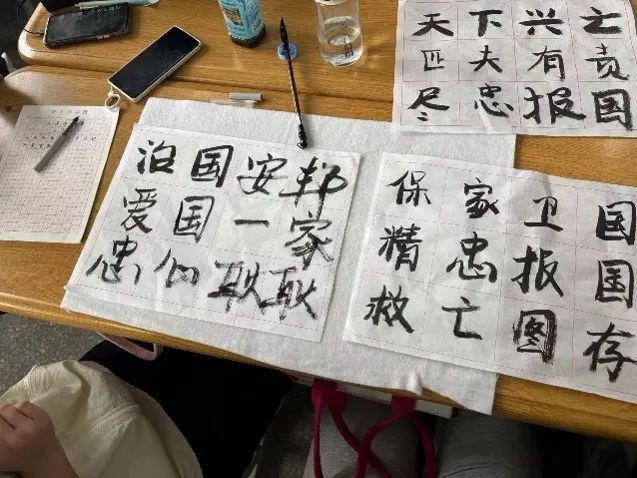 天下兴亡
匹夫有责
尽忠报国
治国安邦
爱国一家
忠心耿耿
保家卫国
精忠报国
救亡图存